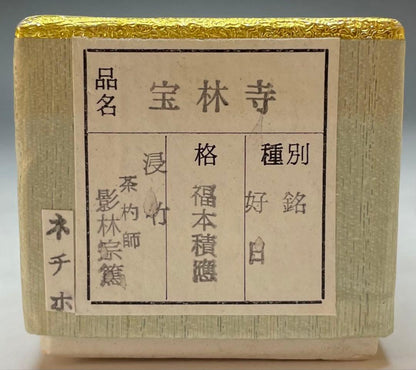 品名
宝林寺
種別
銘
好日
格
福本積應
浸竹
茶杓師
影林宗篤
ネチホ